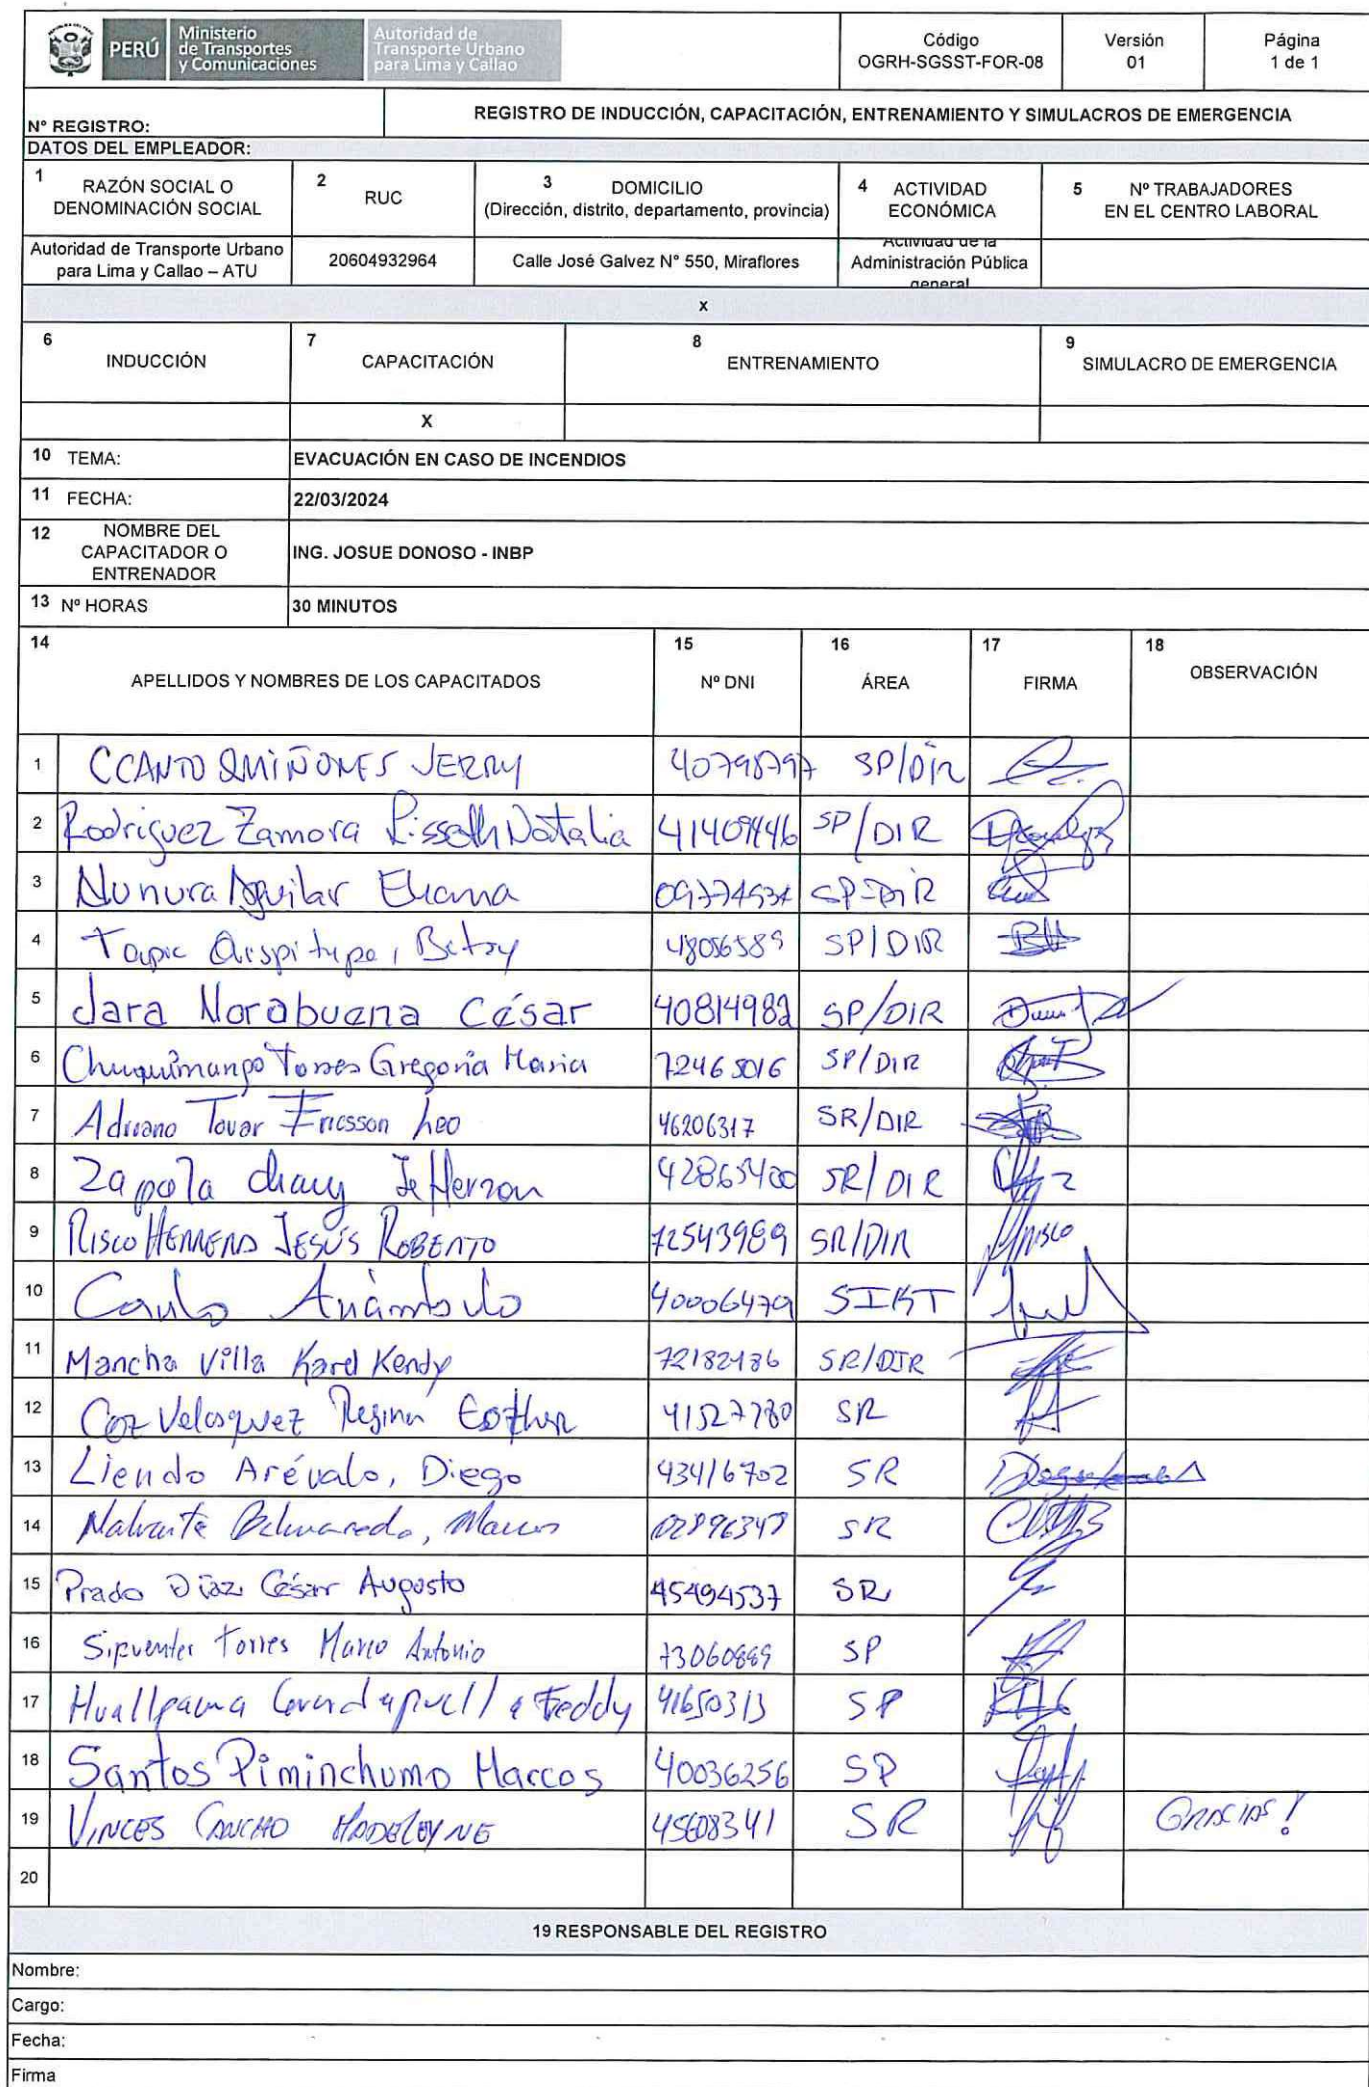 PERÚ Ministerio de Transportes y Comunicaciones Autoridad de Transporte Urbano para Lima y Callao
Código OGRH-SGSST-FOR-08 Versión 01 Página 1 de 1
Nº REGISTRO: REGISTRO DE INDUCCIÓN, CAPACITACIÓN, ENTRENAMIENTO Y SIMULACROS DE EMERGENCIA
DATOS DEL EMPLEADOR:
1 RAZÓN SOCIAL O DENOMINACIÓN SOCIAL 2 RUC 3 DOMICILIO (Dirección, distrito, departamento, provincia) 4 ACTIVIDAD ECONÓMICA 5 Nº TRABAJADORES EN EL CENTRO LABORAL
Autoridad de Transporte Urbano para Lima y Callao – ATU 20604932964 Calle José Galvez N° 550, Miraflores Actividad de la Administración Pública general
x
6 INDUCCIÓN 7 CAPACITACIÓN 8 ENTRENAMIENTO 9 SIMULACRO DE EMERGENCIA
X
10 TEMA: EVACUACIÓN EN CASO DE INCENDIOS
11 FECHA: 22/03/2024
12 NOMBRE DEL CAPACITADOR O ENTRENADOR ING. JOSUE DONOSO - INBP
13 Nº HORAS 30 MINUTOS
14 APELLIDOS Y NOMBRES DE LOS CAPACITADOS 15 Nº DNI 16 ÁREA 17 FIRMA 18 OBSERVACIÓN
1 CCANTO QUIÑONES JERRY 40798797 SP/DIR
2 Rodriguez Zamora Lisseth Natalia 41409446 SP/DIR
3 Nunura Aguilar Eliana SP-DIR
4 Betsy 48056589 SP/DIR
5 Jara Norabuena César 40814982 SP/DIR
6 Chuquimango Torres Gregoria Maria SP/DIR
7 Adriano Tovar Ericsson Leo 46206317 SR/DIR
8 Zapata Chauy Jefferson 42865400 SR/DIR
9 RISCO HERRERA JESÚS ROBERTO 72543989 SR/DIR
10 Carlo
11 Mancha Villa Karel Kendy SR/DIR
12 Coz Velasquez Regina Esther 41527780 SR
13 Liendo Arévalo, Diego 43416702 SR
14 SR
15 Prado Díaz César Augusto 45494537 SR
16 Sifuentes Torres Marco Antonio 73060889 SP
17 Freddy 41650313 SP
18 Santos Piminchumo Marcos 40036256 SP
19 VINCES CANCHO MADELEYNE 45608341 SR GRACIAS!
20
19 RESPONSABLE DEL REGISTRO
Nombre:
Cargo:
Fecha:
Firma